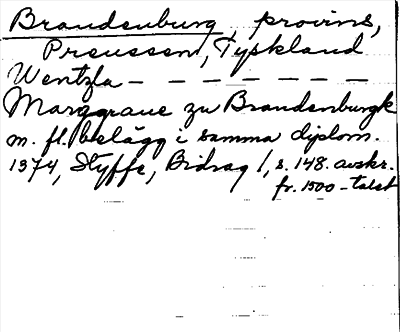 Brandenburg provins,
Preussen, Tyskland
Wentzla – – – – – – –
Marggraue zu Brandenburgk
m. fl. belägg i samma diplom.
1374, Styffe, Bidrag 1, s. 148. avskr.
fr. 1500-talet